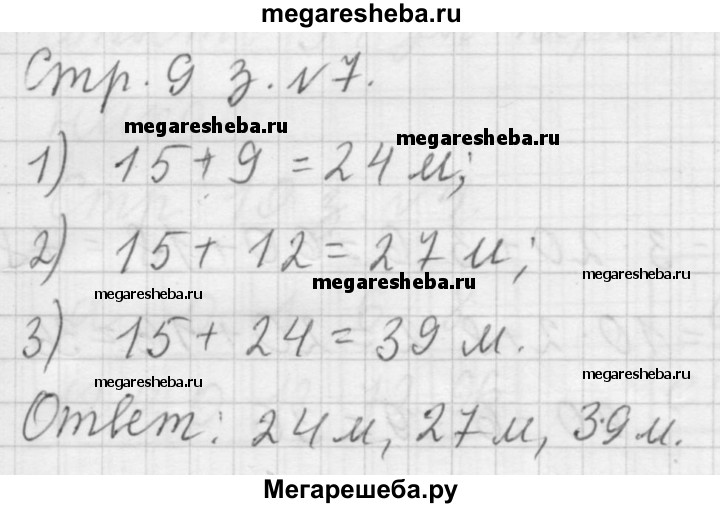 megaresheba.ru
Стр. 9 з. №7.
megaresheba.ru
megaresheba.ru
1) 15 + 9 = 24 м;
2) 15 + 12 = 27 м;
megaresheba.ru
megaresheba.ru
megaresheba.ru
3) 15 + 24 = 39 м.
megaresheba.ru
megaresheba.ru
Ответ: 24 м, 27 м, 39 м.
Мегарешеба.ру